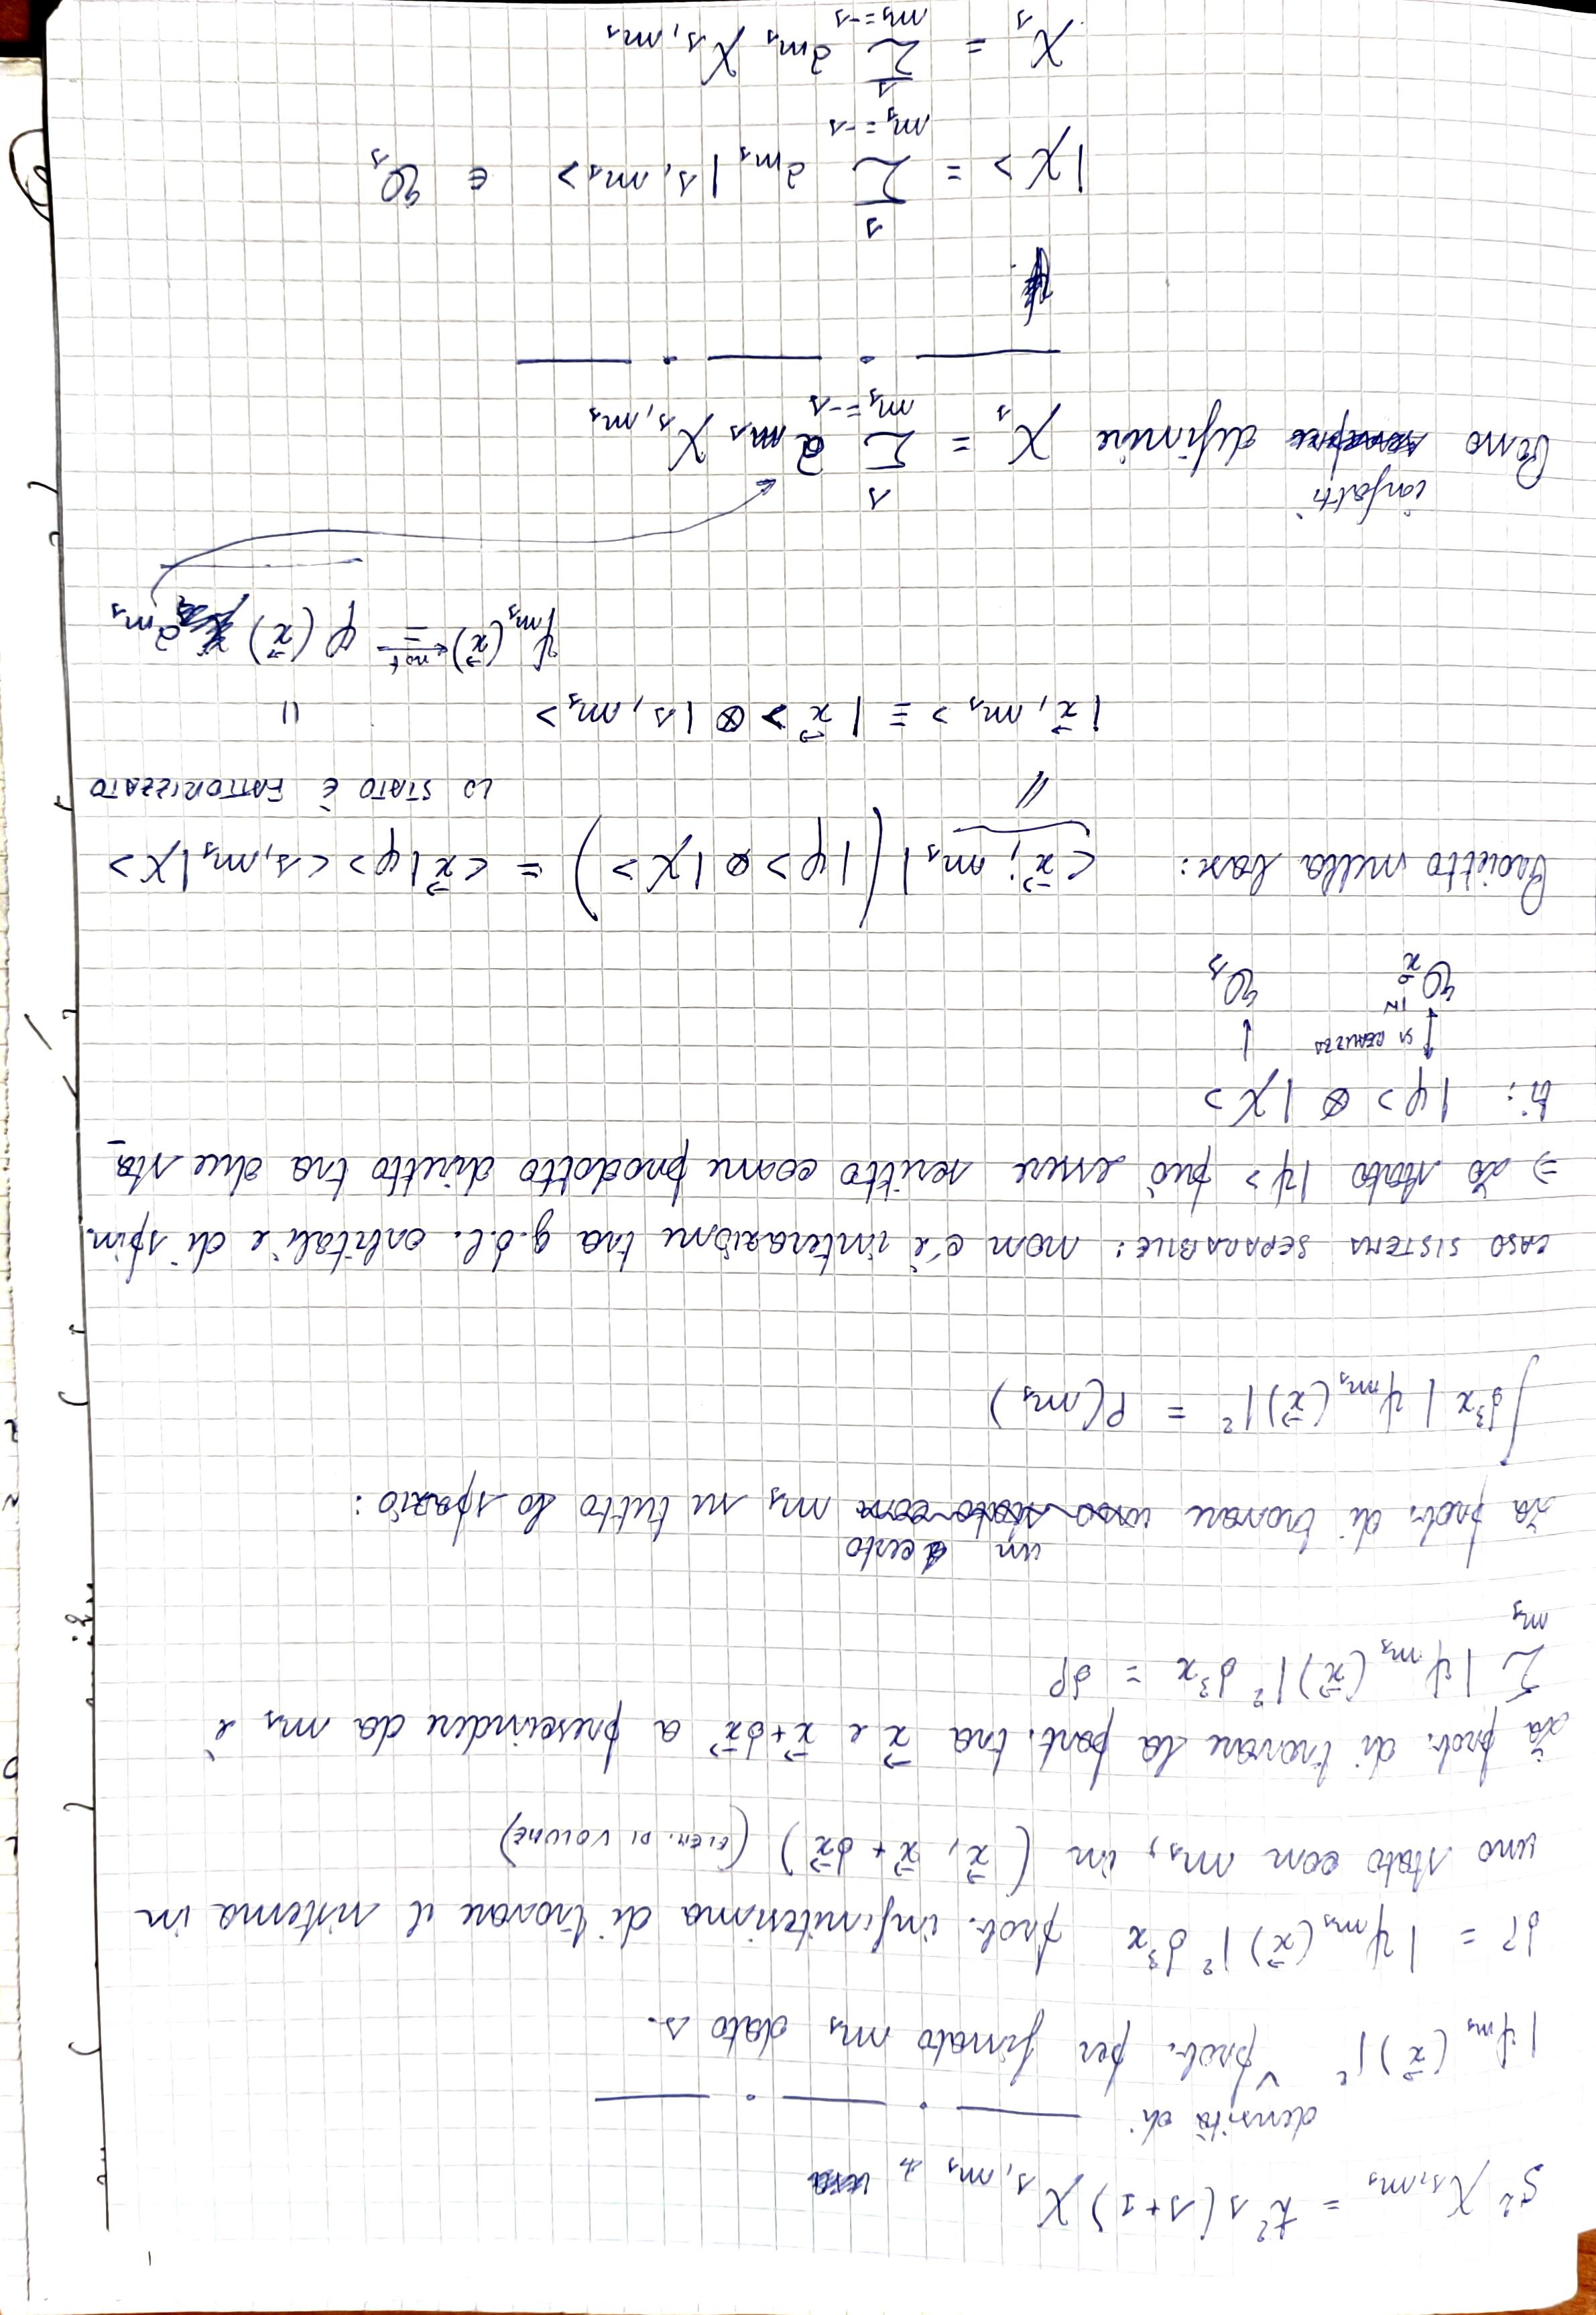 S² χ_{s,m_s} = ħ² s(s+1) χ_{s,m_s}
densità di
|ψ_{m_s}(x⃗)|² prob. per fissato m_s dato s.
dP = |ψ_{m_s}(x⃗)|² d³x prob. infinitesima di trovare il sistema in
uno stato con m_s, in (x⃗, x⃗+dx⃗) (ELEM. DI VOLUME)
La prob. di trovare la part. tra x⃗ e x⃗+dx⃗ a prescindere da m_s è
Σ_{m_s} |ψ_{m_s}(x⃗)|² d³x = dP
un certo
La prob. di trovare uno stato con m_s su tutto lo spazio:
∫d³x |ψ_{m_s}(x⃗)|² = P(m_s)
CASO SISTEMA SEPARABILE: non c'è interazione tra g.d.l. orbitali e di spin.
⇒ Lo stato |ψ> può essere scritto come prodotto diretto tra due sta-
ti: |φ> ⊗ |χ>
SI REALIZZA
IN
ℋ_x⃗ ℋ_s
Proietto nella base: <x⃗; m_s| (|φ> ⊗ |χ>) = <x⃗|φ> <s,m_s|χ>
LO STATO È FATTORIZZATO
|x⃗, m_s> ≡ |x⃗> ⊗ |s, m_s>
ψ_{m_s}(x⃗) = φ(x⃗) a_{m_s}
infatti
Posso definire χ_s = Σ_{m_s=-s}^{s} a_{m_s} χ_{s,m_s}
|χ> = Σ_{m_s=-s}^{s} a_{m_s} |s, m_s> ∈ ℋ_s
χ_s = Σ_{m_s=-s}^{s} a_{m_s} χ_{s,m_s}